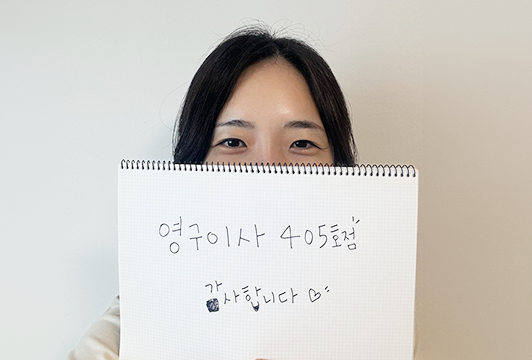 영구이사 405호점
감사합니다 ♡